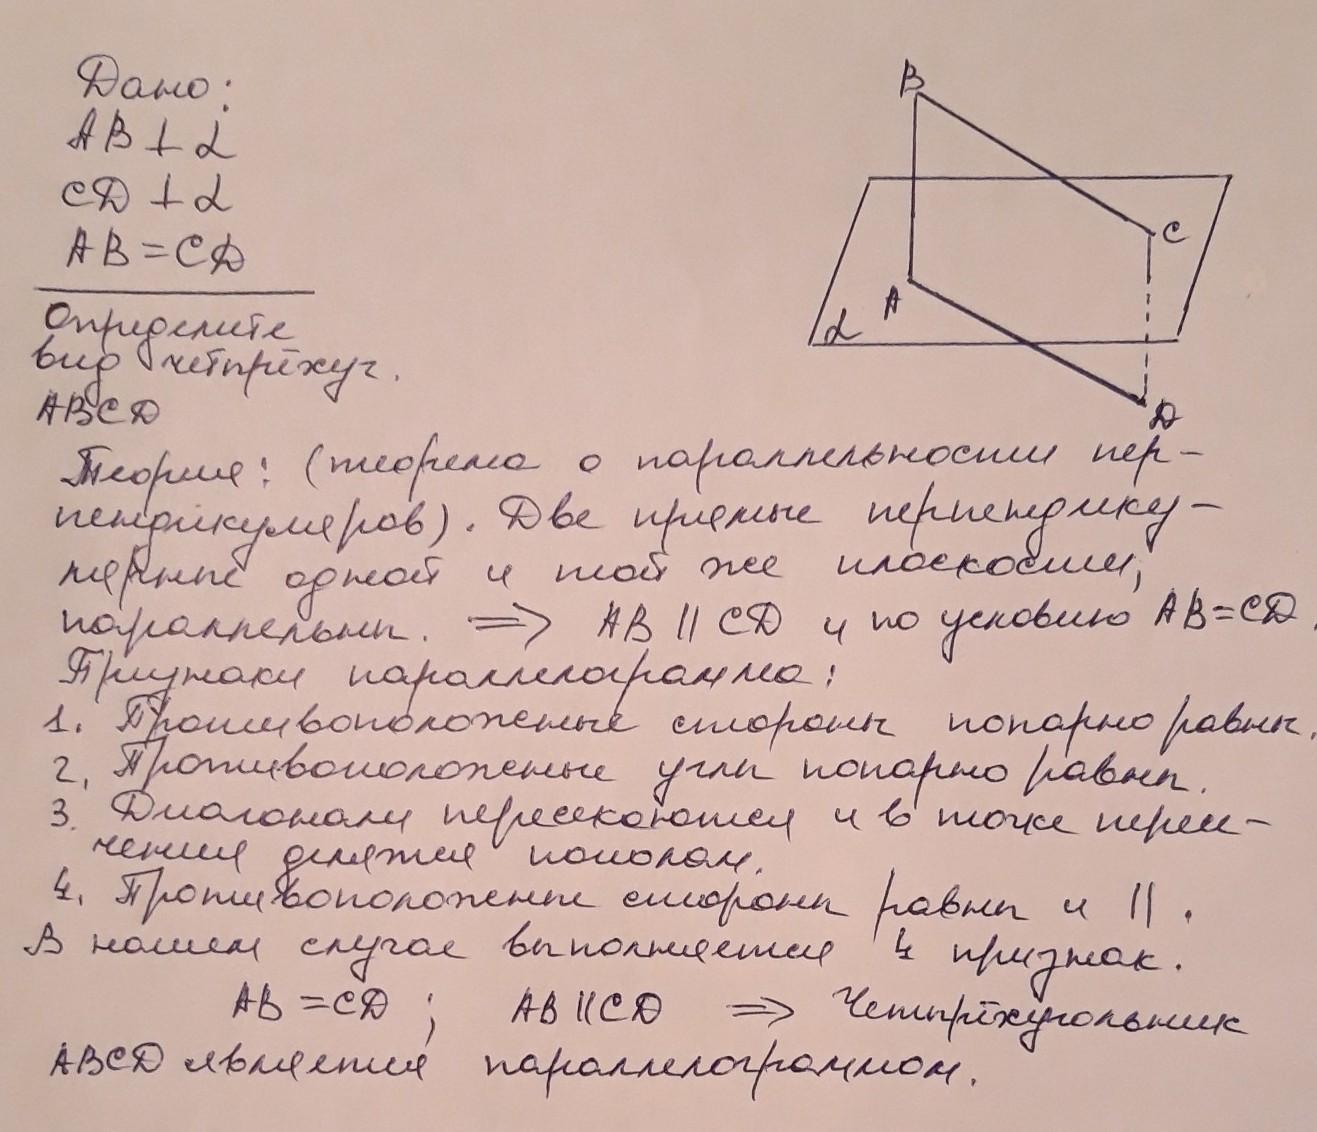 Дано:
AB ⊥ α
CD ⊥ α
AB = CD
Определите
вид четырёхуг.
ABCD
B
C
A
α
D
Теория: (теорема о параллельности пер-
пендикуляров). Две прямые перпендику-
лярные одной и той же плоскости,
параллельны. ⇒ AB || CD и по условию AB = CD.
Признаки параллелограмма:
1. Противоположные стороны попарно равны.
2. Противоположеные углы попарно равны.
3. Диагонали пересекаются и в точке пересе-
чения делятся пополам.
4. Противоположены стороны равны и || .
В нашем случае выполняется 4 признак.
AB = CD ; AB || CD ⇒ Четырёхугольник
ABCD является параллелограммом.